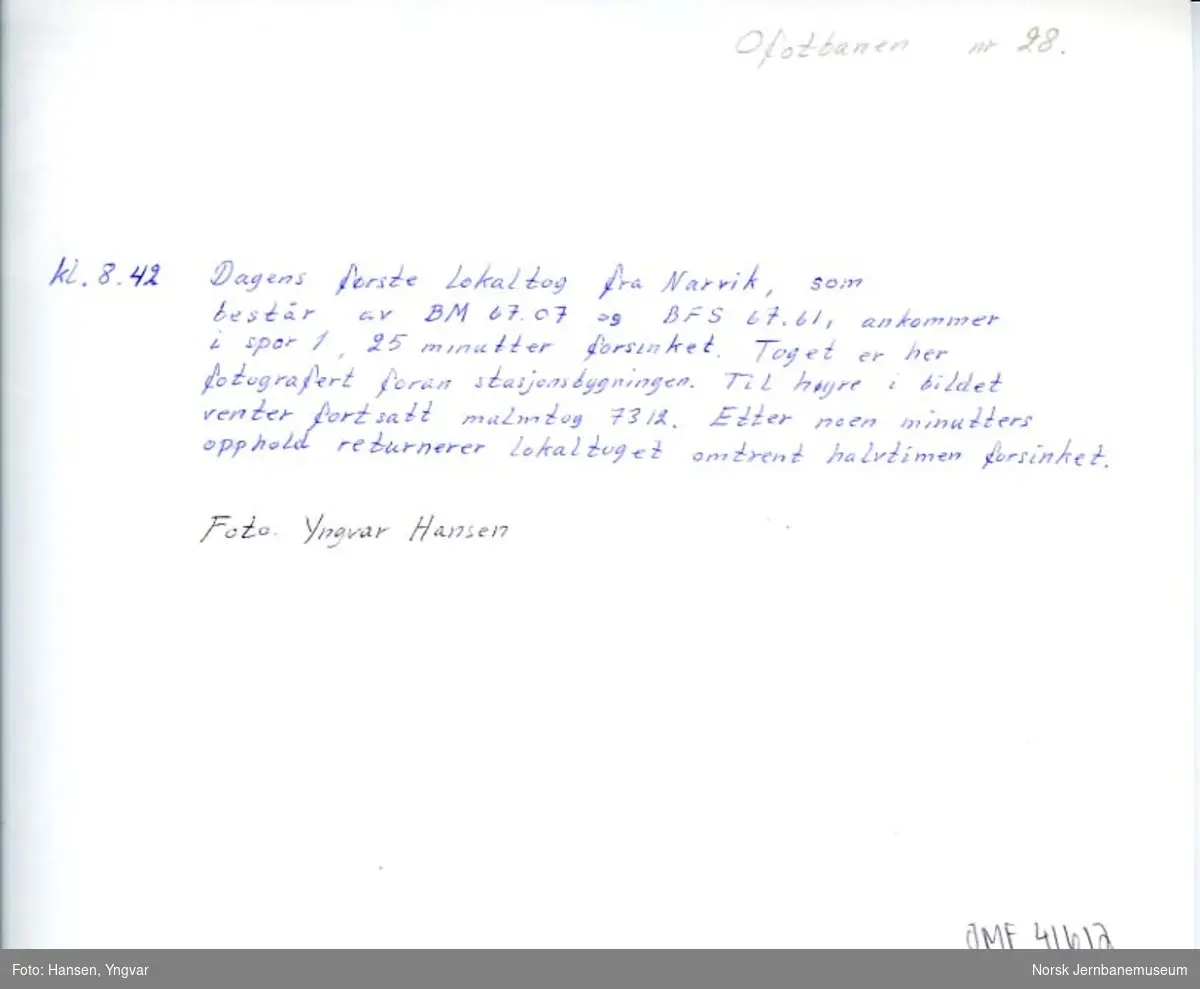 Ofotbanen nr 28.
kl. 8.42 Dagens første lokaltog fra Narvik, som
består av BM 67.07 og BFS 67.61, ankommer
i spor 1, 25 minutter forsinket. Toget er her
fotografert foran stasjonsbygningen. Til høyre i bildet
venter fortsatt malmtog 7312. Etter noen minutters
opphold returnerer lokaltoget omtrent halvtimen forsinket.
Foto. Yngvar Hansen
JMF 41612
Foto: Hansen, Yngvar
Norsk Jernbanemuseum